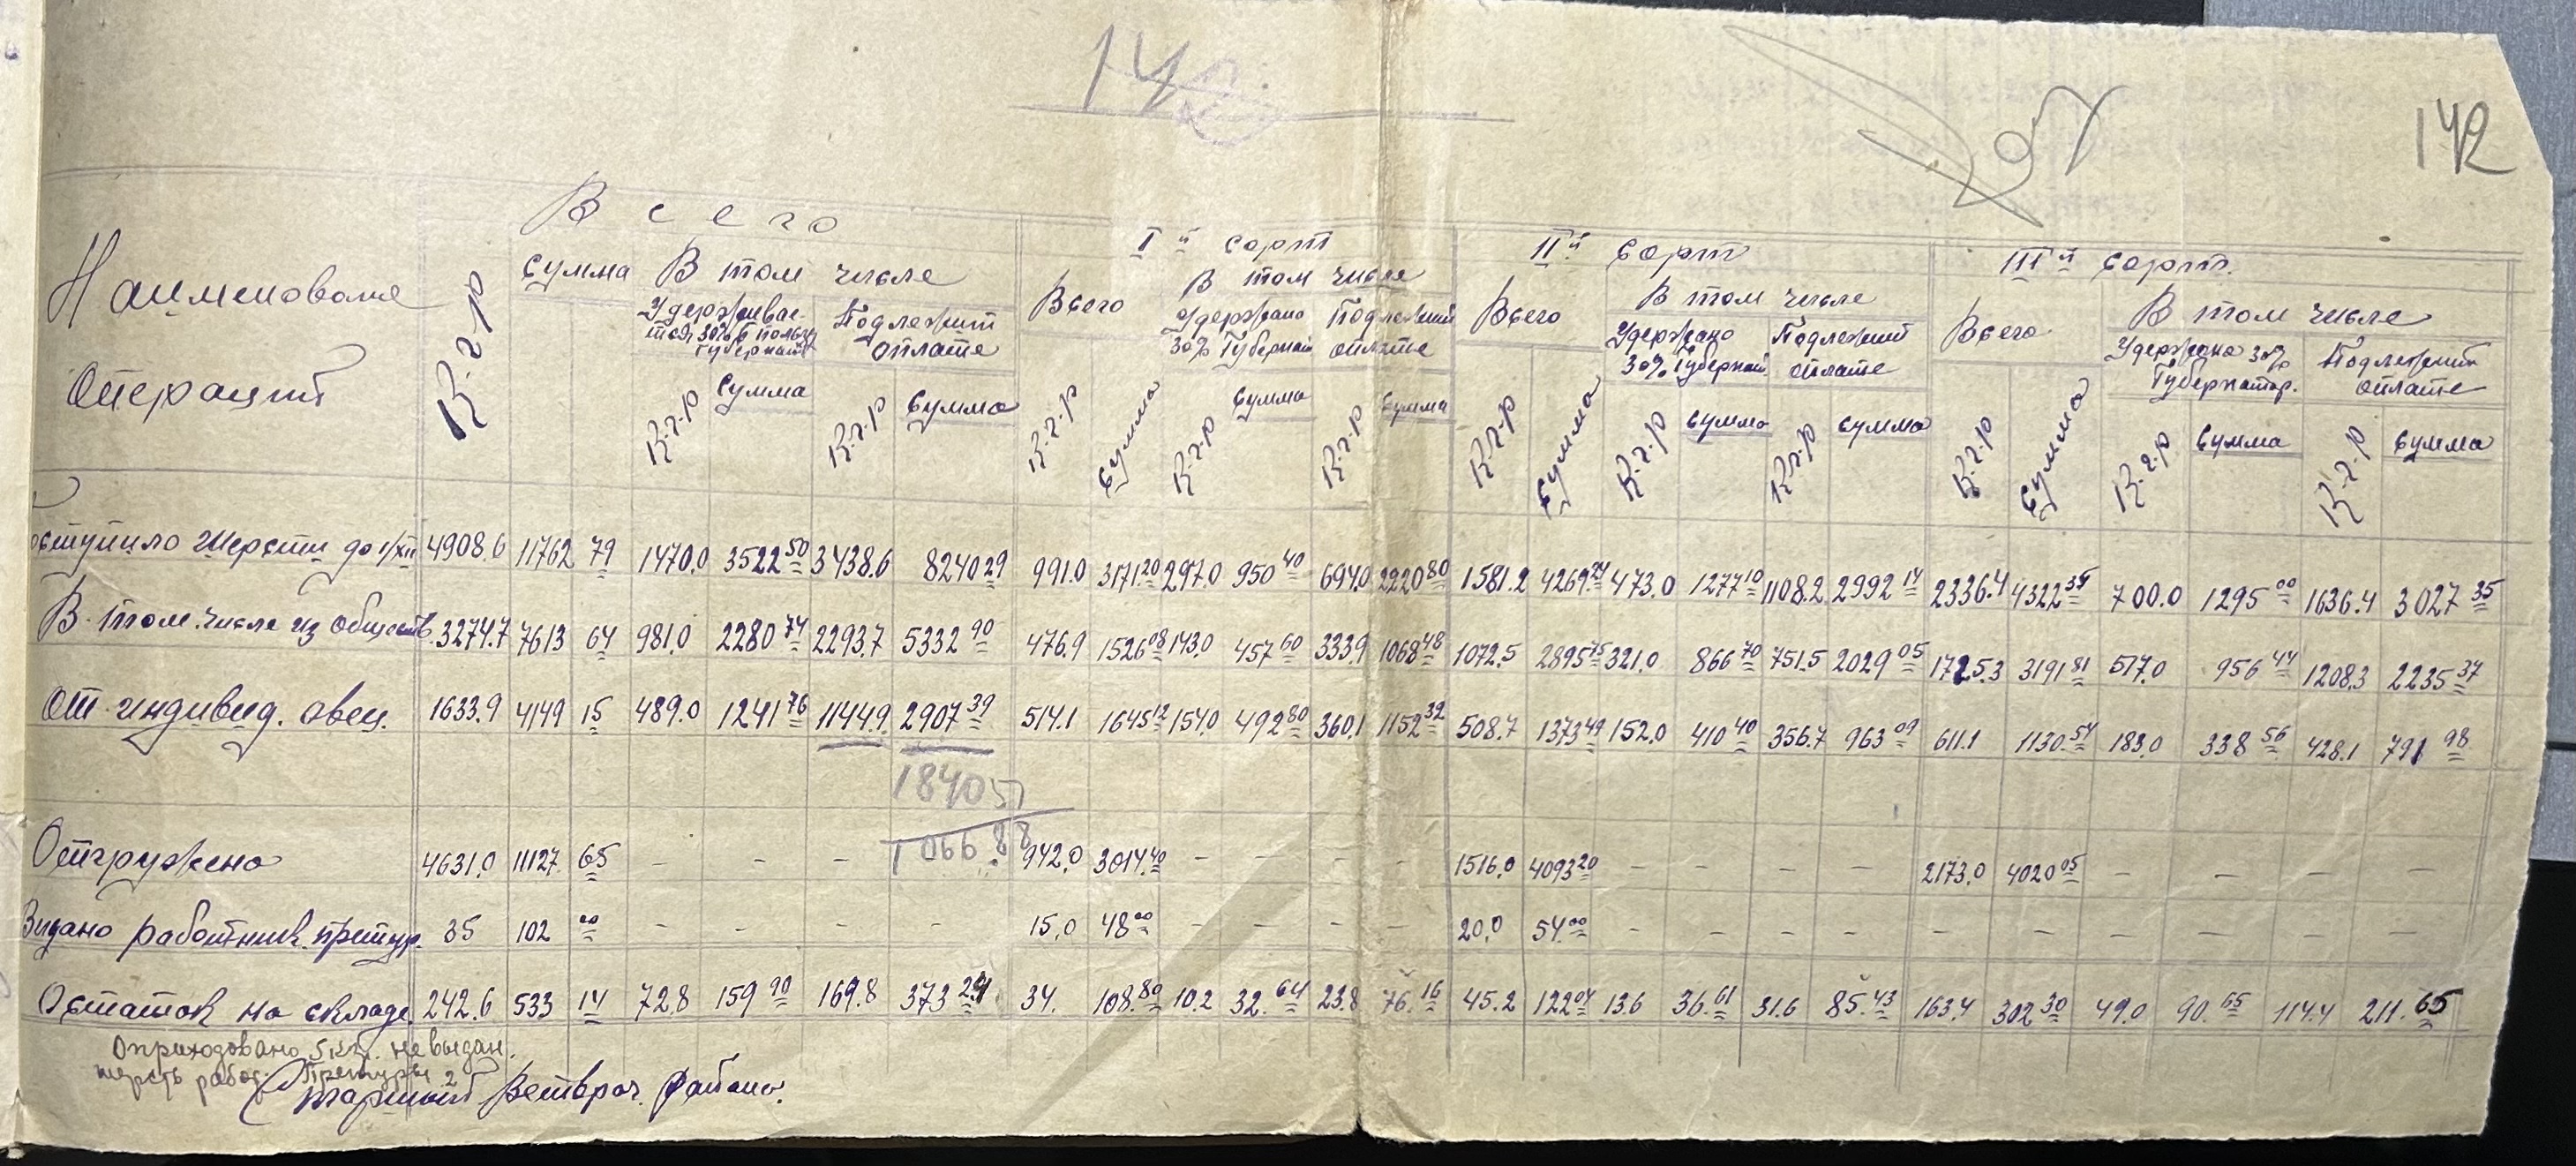 142
142
В с е г о
Наименование
Операций
К-г-р
сумма
В том числе
Удерживае-
тся 30% в пользу
Губернат
Подлежит
оплате
К-г-р
сумма
К-г-р
сумма
I й сорт
Всего
В том числе
Удержано
30% Губернат
Подлежит
оплате
К-г-р
Сумма
К-г-р
Сумма
К-г-р
Сумма
II й сорт
Всего
В том числе
Удержано
30% Губернат
Подлежит
оплате
К-г-р
Сумма
К-г-р
сумма
К-г-р
сумма
III й сорт.
Всего
В том числе
Удержано 30%
Губернатор.
Подлежит
оплате
К-г-р
Сумма
К-г-р
Сумма
К-г-р
Сумма
Поступило шерсти до 1/XII 4908.6 11762 79 1470.0 3522 50 3438.6 8240 29 991.0 3171 20 297.0 950 40 694.0 2220 80 1581.2 4269 24 473.0 1277 10 1108.2 2992 14 2336.4 4322 35 700.0 1295 00 1636.4 3027 35
В том числе из обществ. 3274.7 7613 64 981.0 2280 74 2293.7 5332 90 476.9 1526 08 143.0 457 60 333.9 1068 48 1072.5 2895 75 321.0 866 70 751.5 2029 05 1725.3 3191 81 517.0 956 44 1208.3 2235 37
От индивид. овец. 1633.9 4149 15 489.0 1241 76 1144.9 2907 39 514.1 1645 12 154.0 492 80 360.1 1152 32 508.7 1373 49 152.0 410 40 356.7 963 09 611.1 1130.54 183.0 338 56 428.1 791 98
1840 51
1066.88
Отгружено 4631.0 11127 65 – – – 942.0 3014.40 – – – – 1516.0 4093 20 – – – – 2173.0 4020 05 – – – –
Выдано работник. претур. 35 102 00 – – – – 15.0 48 00 – – – – 20.0 54.00 – – – – – – – – – –
Остаток на складе 242.6 533 14 72.8 159 90 169.8 373 24 34. 108.80 10.2 32.64 23.8 76.16 45.2 122 04 13.6 36.61 31.6 85.43 163.4 302 30 49.0 90.65 114.4 211.65
Оприходовано 5 кг. не выдан.
шерсть работ. Претуры
Старший Ветврач Района.